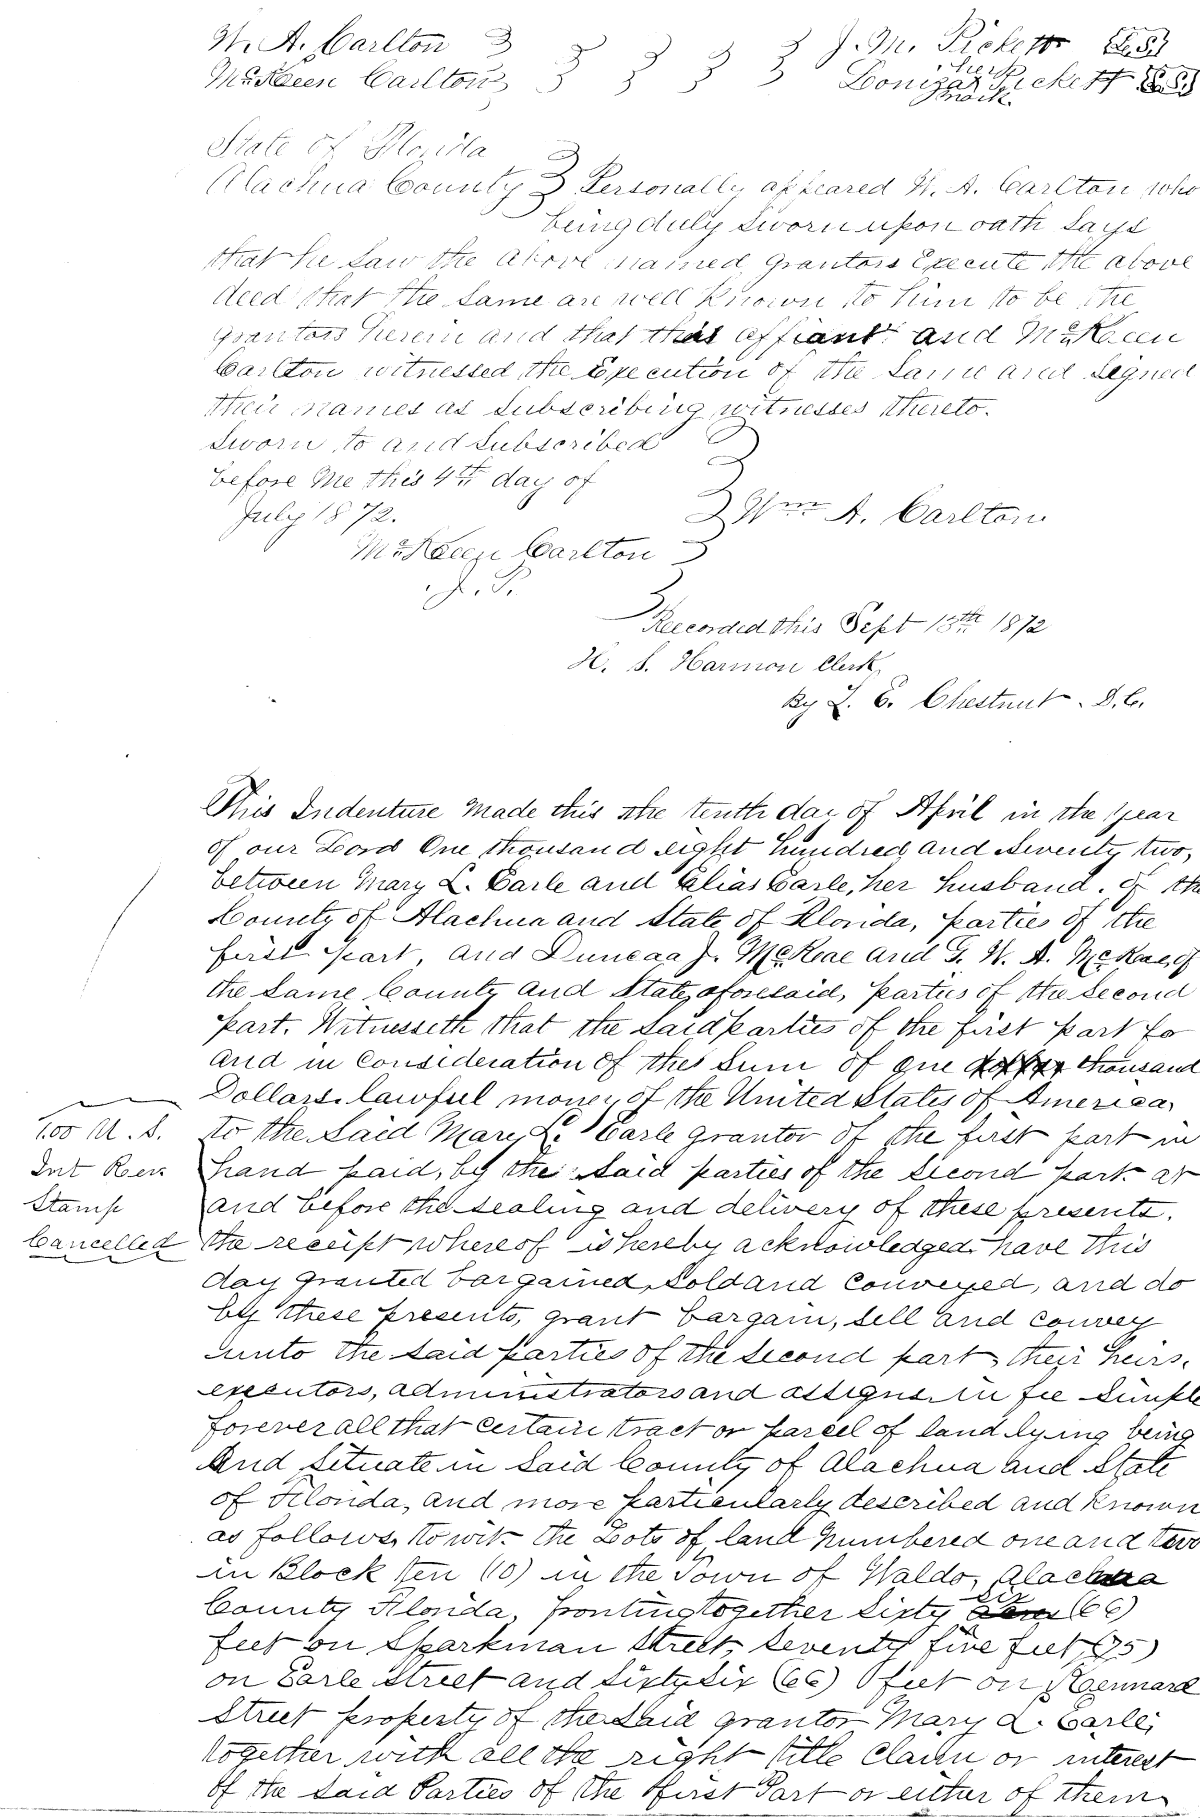 W. A. Carlton J. M. Pickett {L.S.}
McKeen Carlton Louiza her mark Pickett {L.S.}
State of Florida
Alachua County } Personally appeared W. A. Carlton who
being duly sworn upon oath says
that he saw the above named grantors Execute the above
deed that the same are well known to him to be the
grantors herein and that this affiant and McKeen
Carlton witnessed the Execution of the same and signed
their names as subscribing witnesses thereto.
Sworn to and subscribed
before me this 4th day of
July 1872. Wm A. Carlton.
McKeen Carlton
J. P.
Recorded this Sept 13th 1872
H. S. Harmon Clerk
By L. E. Chestnut. D.C.
This Indenture Made this the tenth day of April in the year
of our Lord One thousand eight hundred and seventy two,
between Mary L. Earle and Elias Earle, her husband. of the
County of Alachua and State of Florida, parties of the
first part, and Duncan J. McRae and G. W. A. McRae, of
the same County and State aforesaid, parties of the second
part. Witnesseth that the said parties of the first part fo
and in consideration of the sum of one thousand
Dollars. lawful money of the United States of America,
to the said Mary L. Earle grantor of the first part in
hand paid, by the said parties of the second part at
and before the sealing and delivery of these presents.
the receipt whereof is hereby acknowledged have this
day granted bargained, sold and conveyed, and do
by these presents, grant bargain, sell and convey
unto the said parties of the second part, their heirs,
executors, administrators and assigns in fee simple
forever all that certain tract or parcel of land lying being
And situate in said County of Alachua and State
of Florida, and more particularly described and known
as follows, to wit. the Lots of land numbered one and two
in Block ten (10) in the Town of Waldo, Alachua
County Florida, fronting together sixty six (66)
feet on Sparkman Street, seventy five feet (75)
on Earle Street and sixty six (66) feet on Kennard
Street property of the said grantor Mary L. Earle;
together with all the right title claim or interest
of the said Parties of the first Part or either of them
1.00 U. S.
Int Rev
Stamp
Cancelled